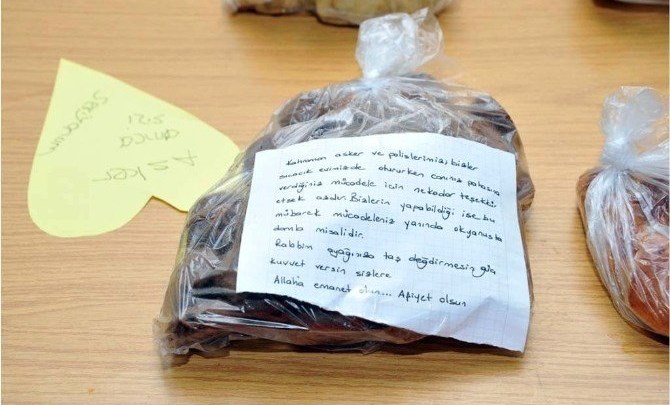 Asker
amca
sizi
seviyorum
Kahraman asker ve polislerimiz; bizler
sıcacık evimizde otururken canınız pahasına
verdiğiniz mücadele için nekadar teşekkür
etsek azdır. Bizlerin yapabildiği ise bu
mübarek mücadeleniz yanında okyanusta
damla misalidir.
Rabbim ayağınıza taş değdirmesin güç
kuvvet versin sizlere
Allaha emanet olun... Afiyet olsun